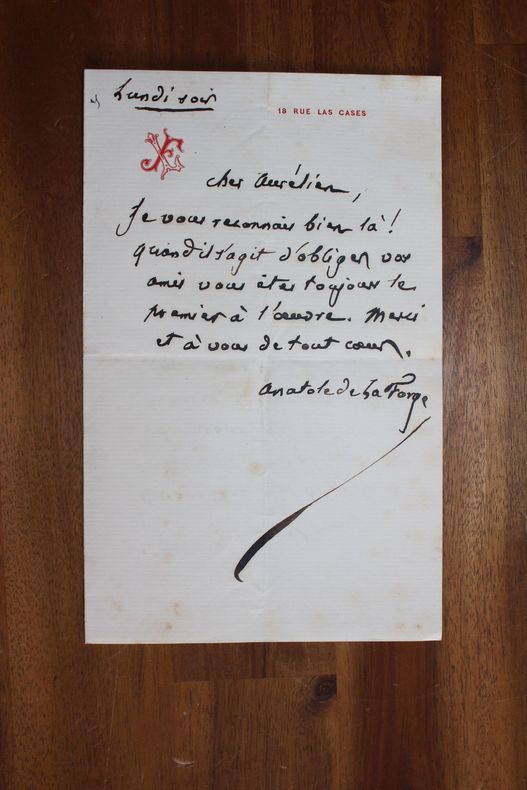 Lundi soir
18 RUE LAS CASES
cher Aurélien,
Je vous reconnais bien là !
quand il s'agit d'obliger vos
amis vous êtes toujours le
premier à l'œuvre. Merci
et à vous de tout cœur.
Anatole de La Forge